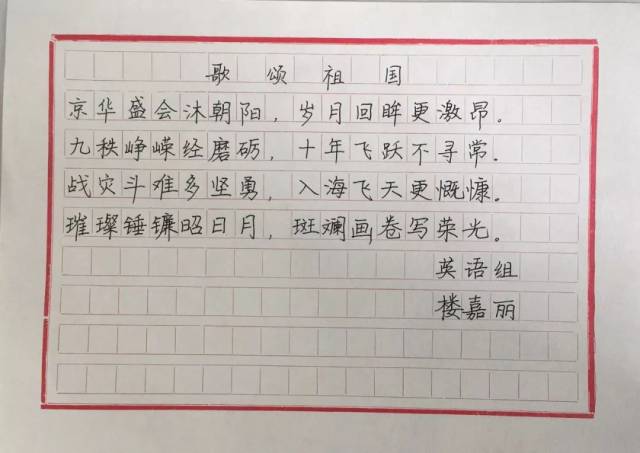 歌颂祖国
京华盛会沐朝阳，岁月回眸更激昂。
九秩峥嵘经磨砺，十年飞跃不寻常。
战灾斗难多坚勇，入海飞天更慨慷。
璀璨锤镰昭日月，斑斓画卷写荣光。
英语组
楼嘉丽